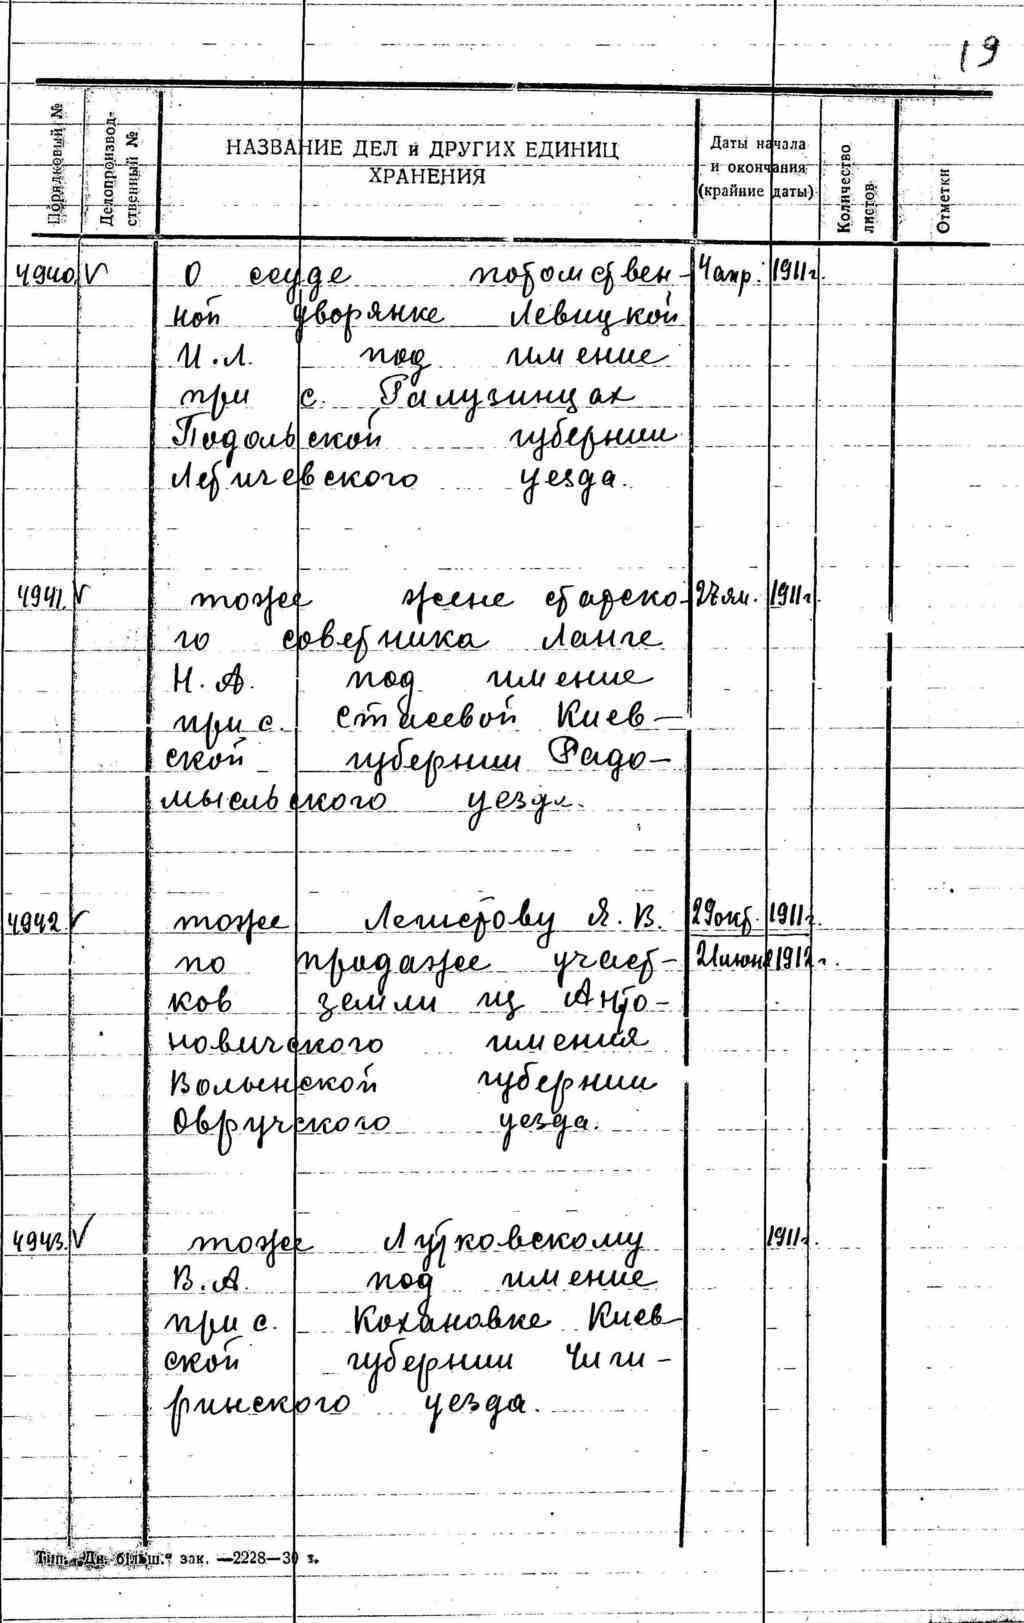 19
Порядковый №
Делопроизвод-
ственный №
НАЗВАНИЕ ДЕЛ и ДРУГИХ ЕДИНИЦ
ХРАНЕНИЯ
Даты начала
и окончания
(крайние даты)
Количество
листов
Отметки
4940. V О ссуде потомствен- 4 апр. 1911 г.
ной дворянке Левицкой
И.Л. под имение
при с. Галузинцах
Подольской губернии
Летичевского уезда.
4941. V тоже жене статско- 27 ян. 1911 г.
го советника Ланге
Н.А. под имение
при с. Стасевой Киев-
ской губернии Радо-
мысльского уезда.
4942. V тоже Легистову Я.В. 29 окт. 1911 г.
по продаже участ- 21 июня 1912 г.
ков земли из Анто-
новичского имения
Волынской губернии
Овручского уезда.
4943. V тоже Лутковскому 1911 г.
В.А. под имение
при с. Кохановке Киев-
ской губернии Чиги-
ринского уезда.
Тип. „Дн. більш." зак. —2228—30 т.